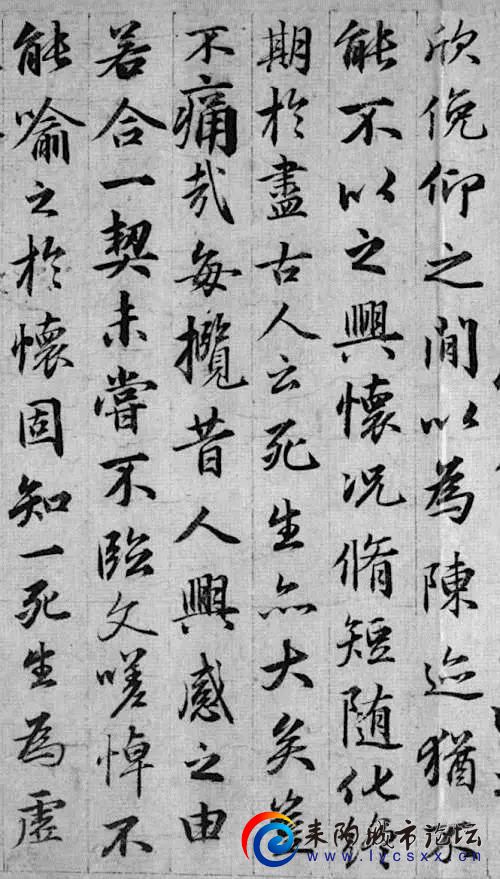 欣俛仰之閒以為陳迹猶不
能不以之興懷況脩短随化終
期於盡古人云死生亦大矣豈
不痛哉每攬昔人興感之由
若合一契未嘗不臨文嗟悼不
能喻之於懷固知一死生為虛
耒阳城市论坛
www.lycsxx.cn